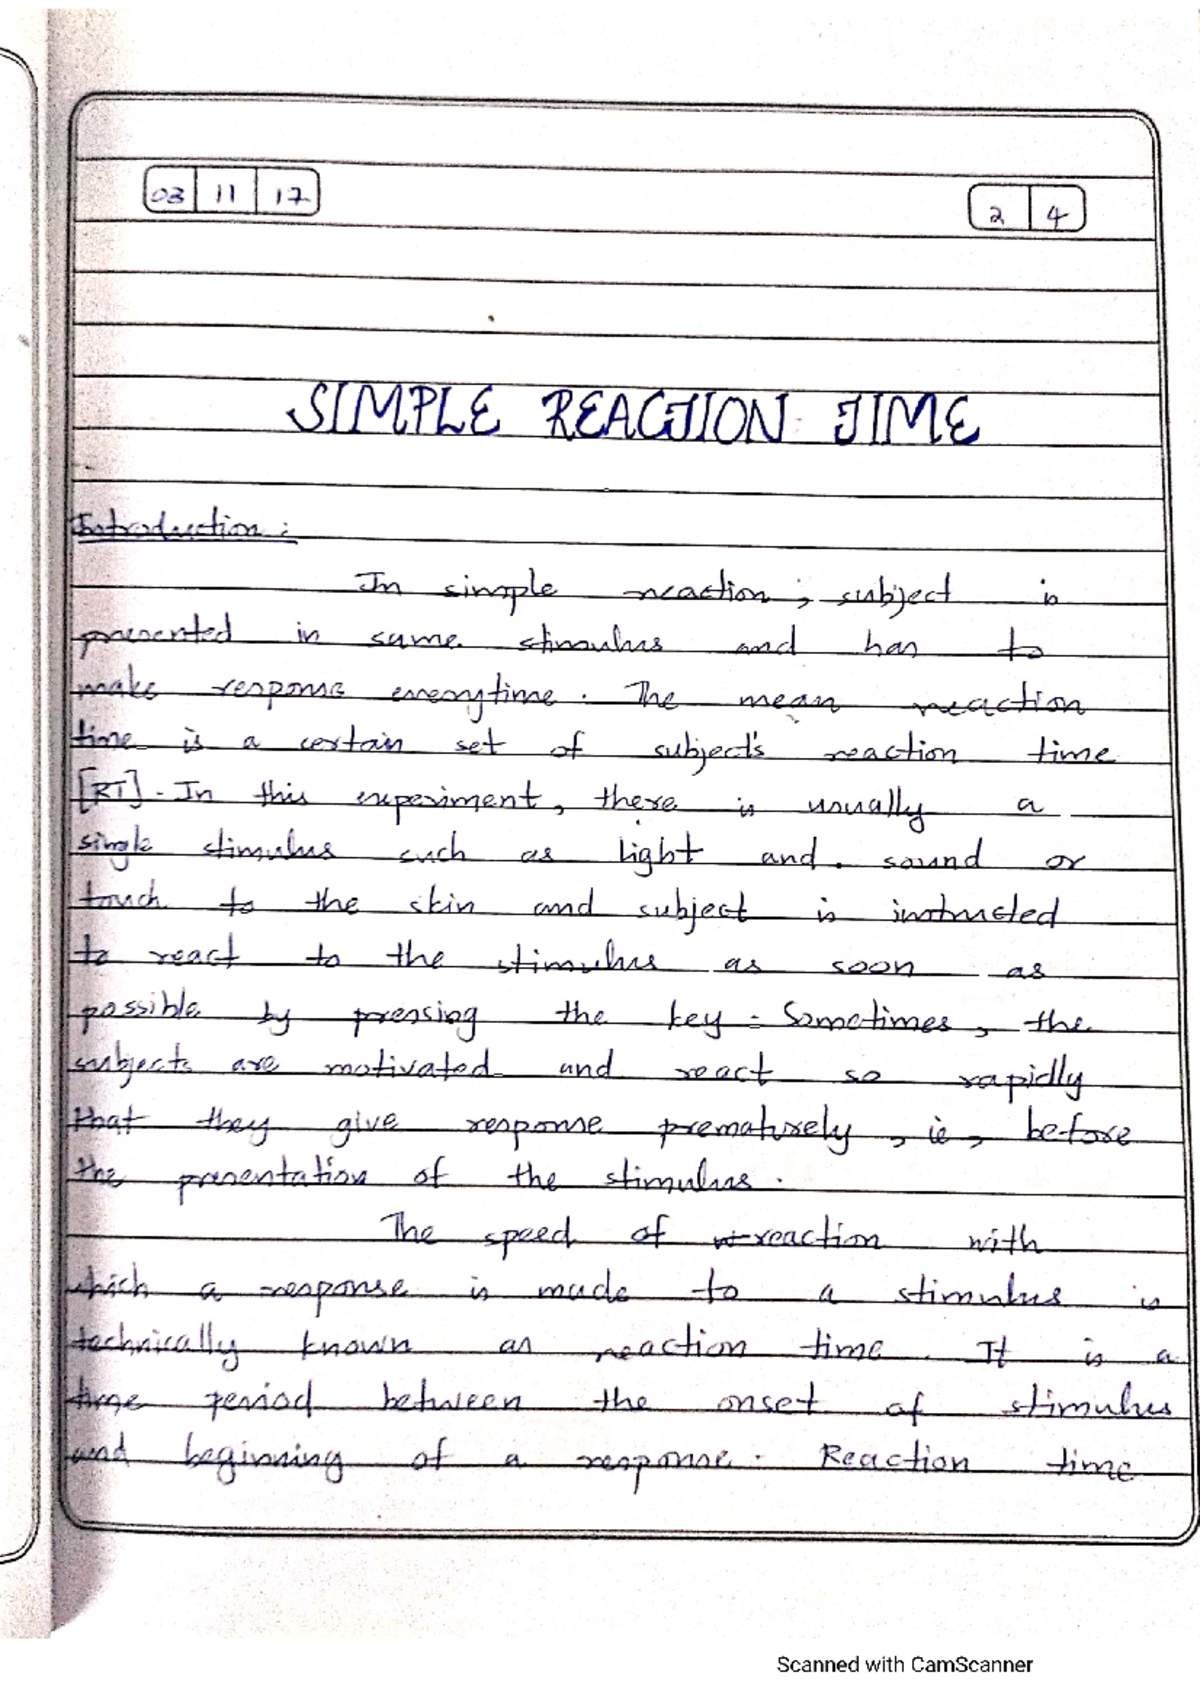 03 11 17
2 4
SIMPLE REACTION TIME
Introduction :
In simple reaction, subject is
presented in same stimulus and has to
make response everytime. The mean reaction
time is a certain set of subject's reaction time
[RT]. In this experiment, there is usually a
single stimulus such as light and. sound or
touch to the skin and subject is instructed
to react to the stimulus as soon as
possible by pressing the key. Sometimes, the
subjects are motivated and react so rapidly
that they give response prematurely, ie, before
the presentation of the stimulus.
The speed of reaction with
which a response is made to a stimulus is
technically known as reaction time. It is a
time period between the onset of stimulus
and beginning of a response. Reaction time
Scanned with CamScanner